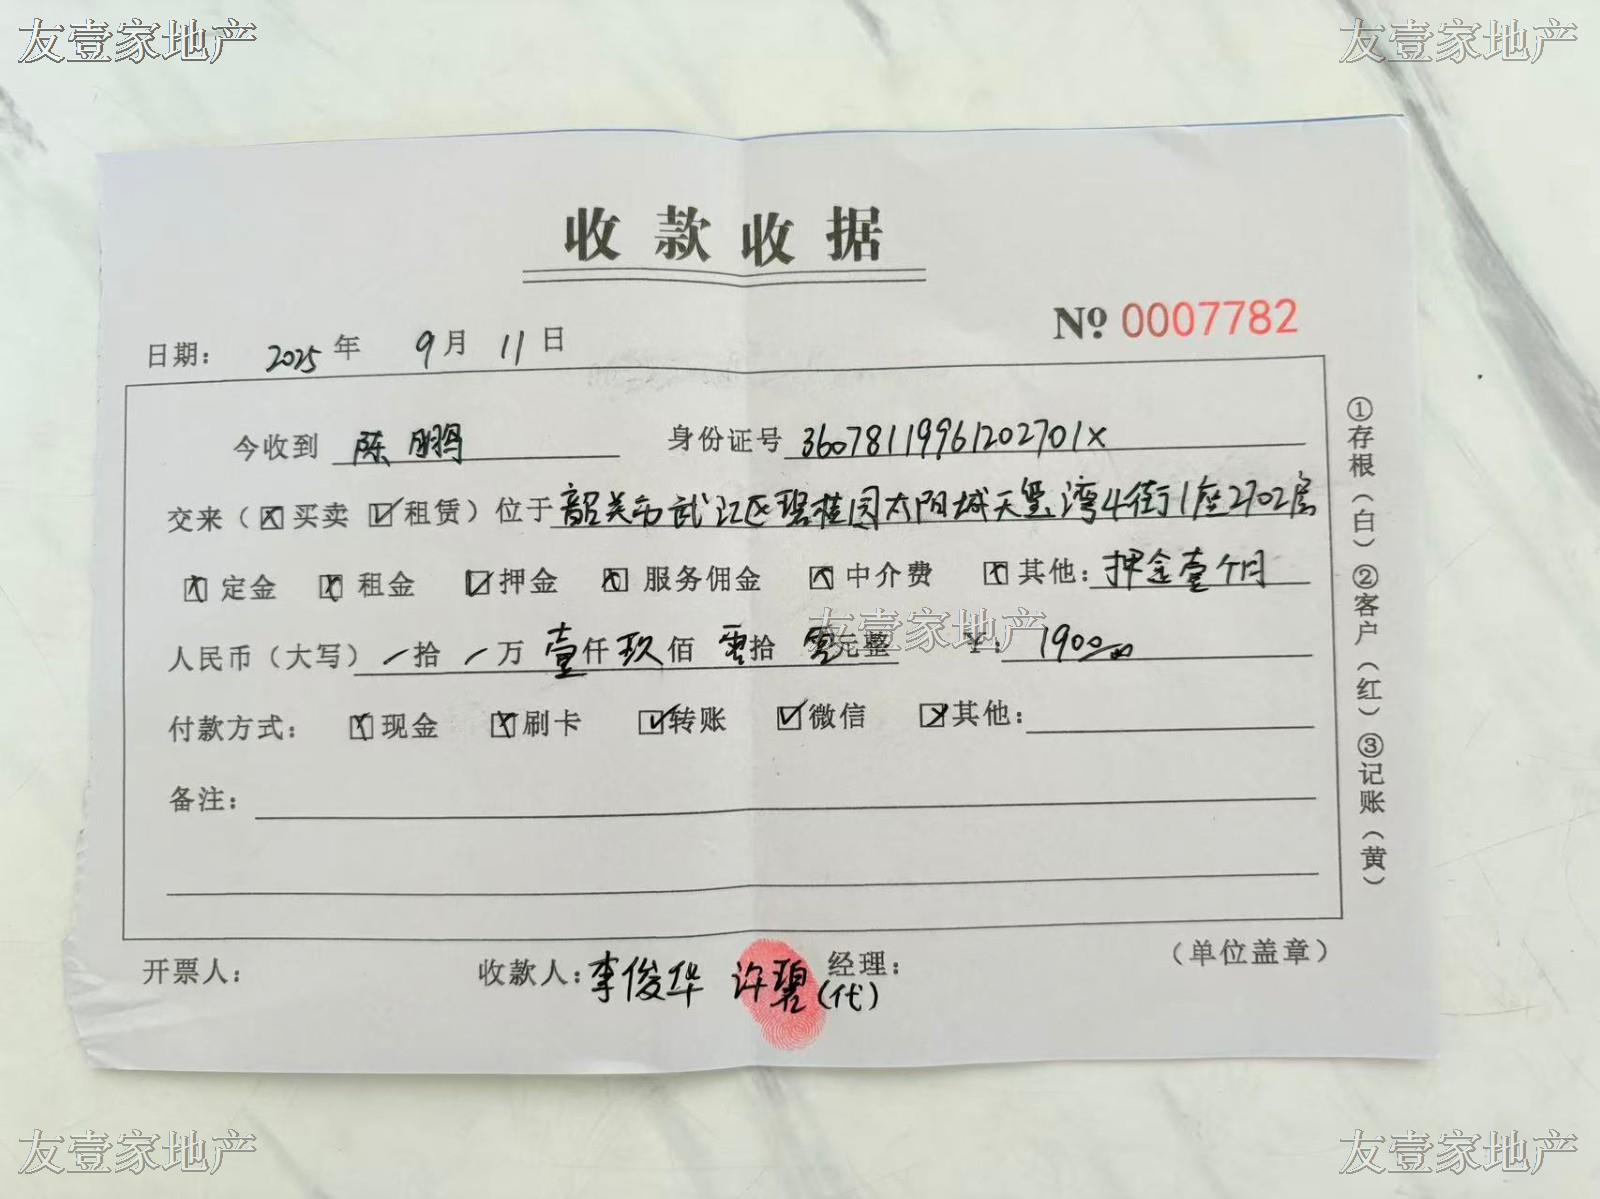 友壹家地产 友壹家地产
收款收据
№ 0007782
日期： 2025 年 9 月 11 日
今收到 陈鹏 身份证号 36078119961202701X
交来（☒买卖 ☑租赁）位于韶关市武江区碧桂园太阳城天玺湾4街1座2702层
☒定金 ☒租金 ☑押金 ☒服务佣金 ☒中介费 ☒其他：押金壹个月
友壹家地产
人民币（大写）/拾 /万 壹仟 玖佰 零拾 零元整 ¥：1900.00
付款方式： ☒现金 ☒刷卡 ☑转账 ☑微信 ☒其他：
备注：
①存根（白）②客户（红）③记账（黄）
开票人： 收款人：李俊华 许碧（代） 经理： （单位盖章）
友壹家地产 友壹家地产